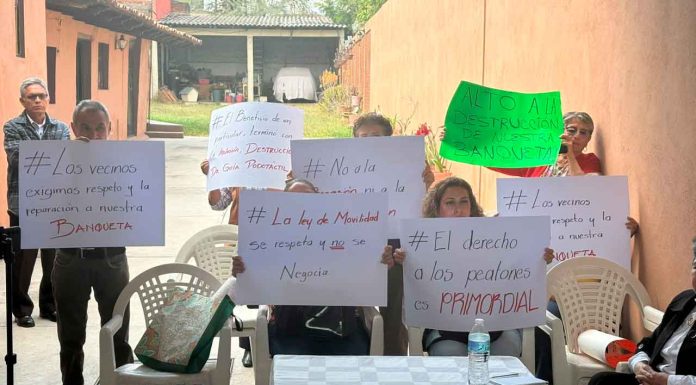 # Los vecinos
exigimos respeto y la
reparación a nuestra
BANQUETA
# El Beneficio de un
particular, terminó con
DESTRUCCIÓN
DE GUÍA PODOTACTIL
# No a la
ni a la
# La ley de Movilidad
se respeta y no se
Negocia
# El derecho
a los peatones
es PRIMORDIAL
ALTO A LA
DESTRUCCIÓN
DE NUESTRA
BANQUETA
# Los vecinos
respeto y la
a nuestra